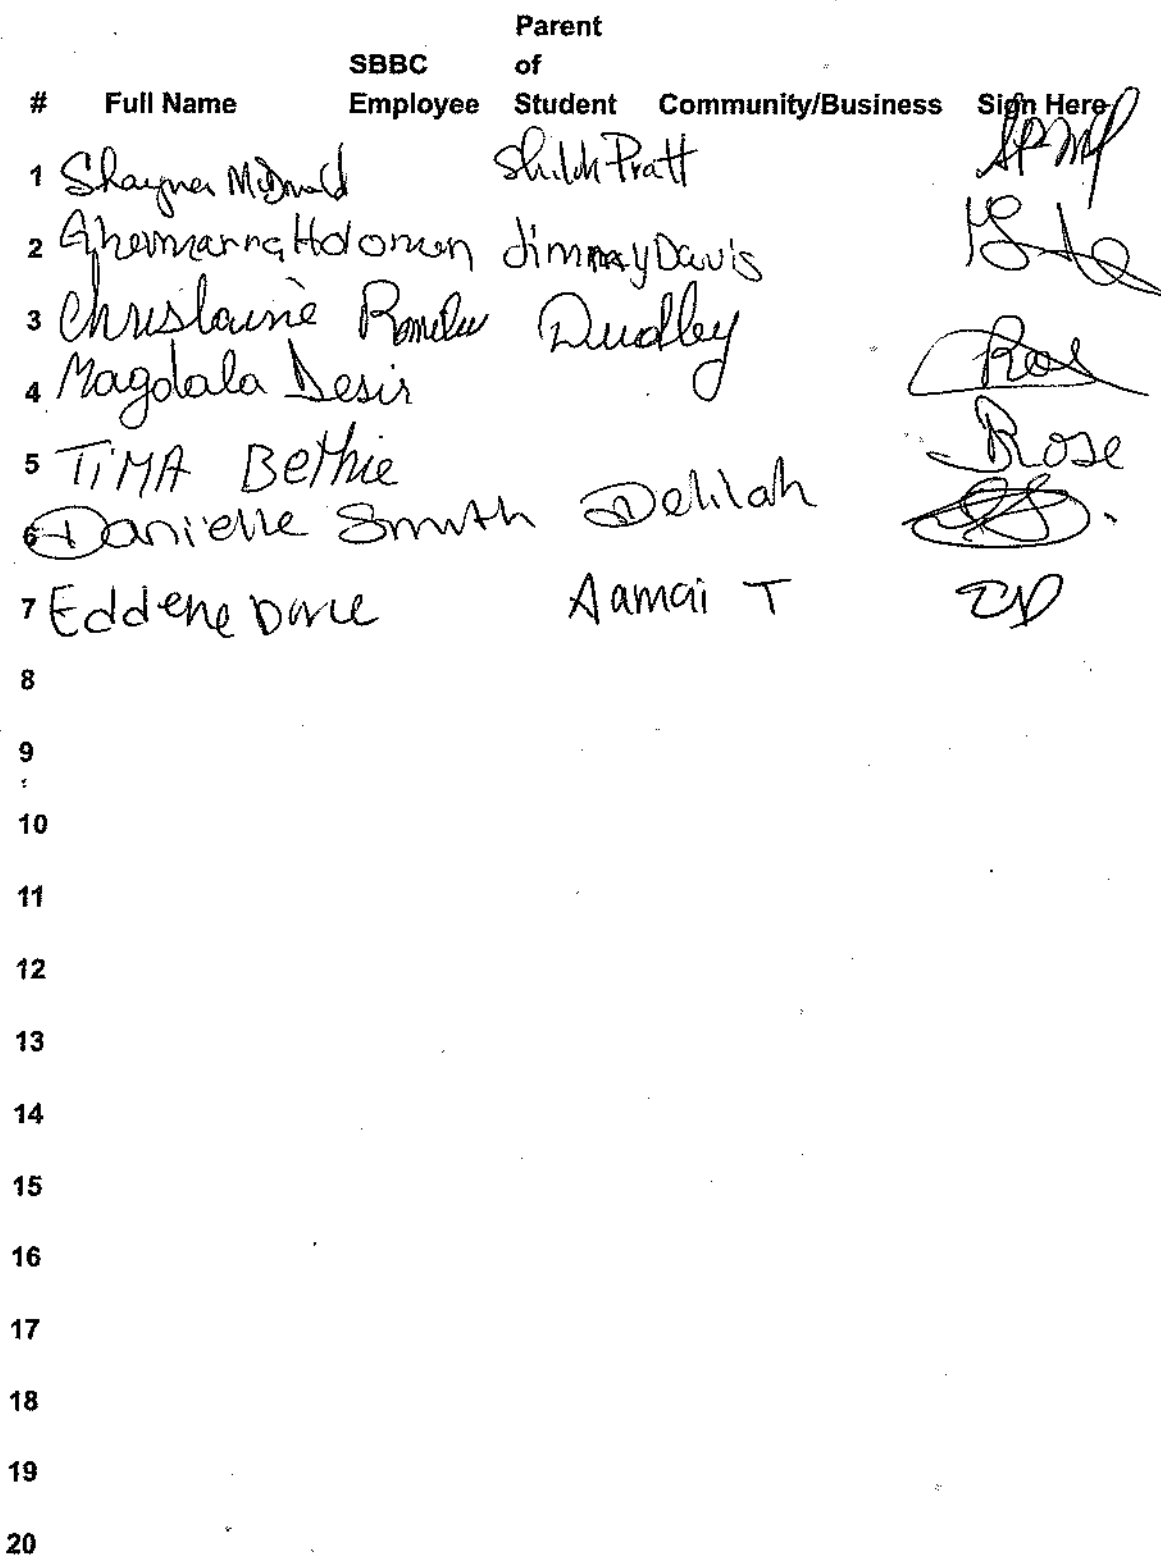 Parent
SBBC of
# Full Name Employee Student Community/Business Sign Here
1 Shayna McDonald Shiloh Pratt
2 Holomon Jimmay Davis
3 Chrislaine Romelus Dudley
4 Magdala Desir
5 TiMA BeThie Rose
6 Danielle Smith Delilah
7 Eddene Aamai T ED
8
9
10
11
12
13
14
15
16
17
18
19
20